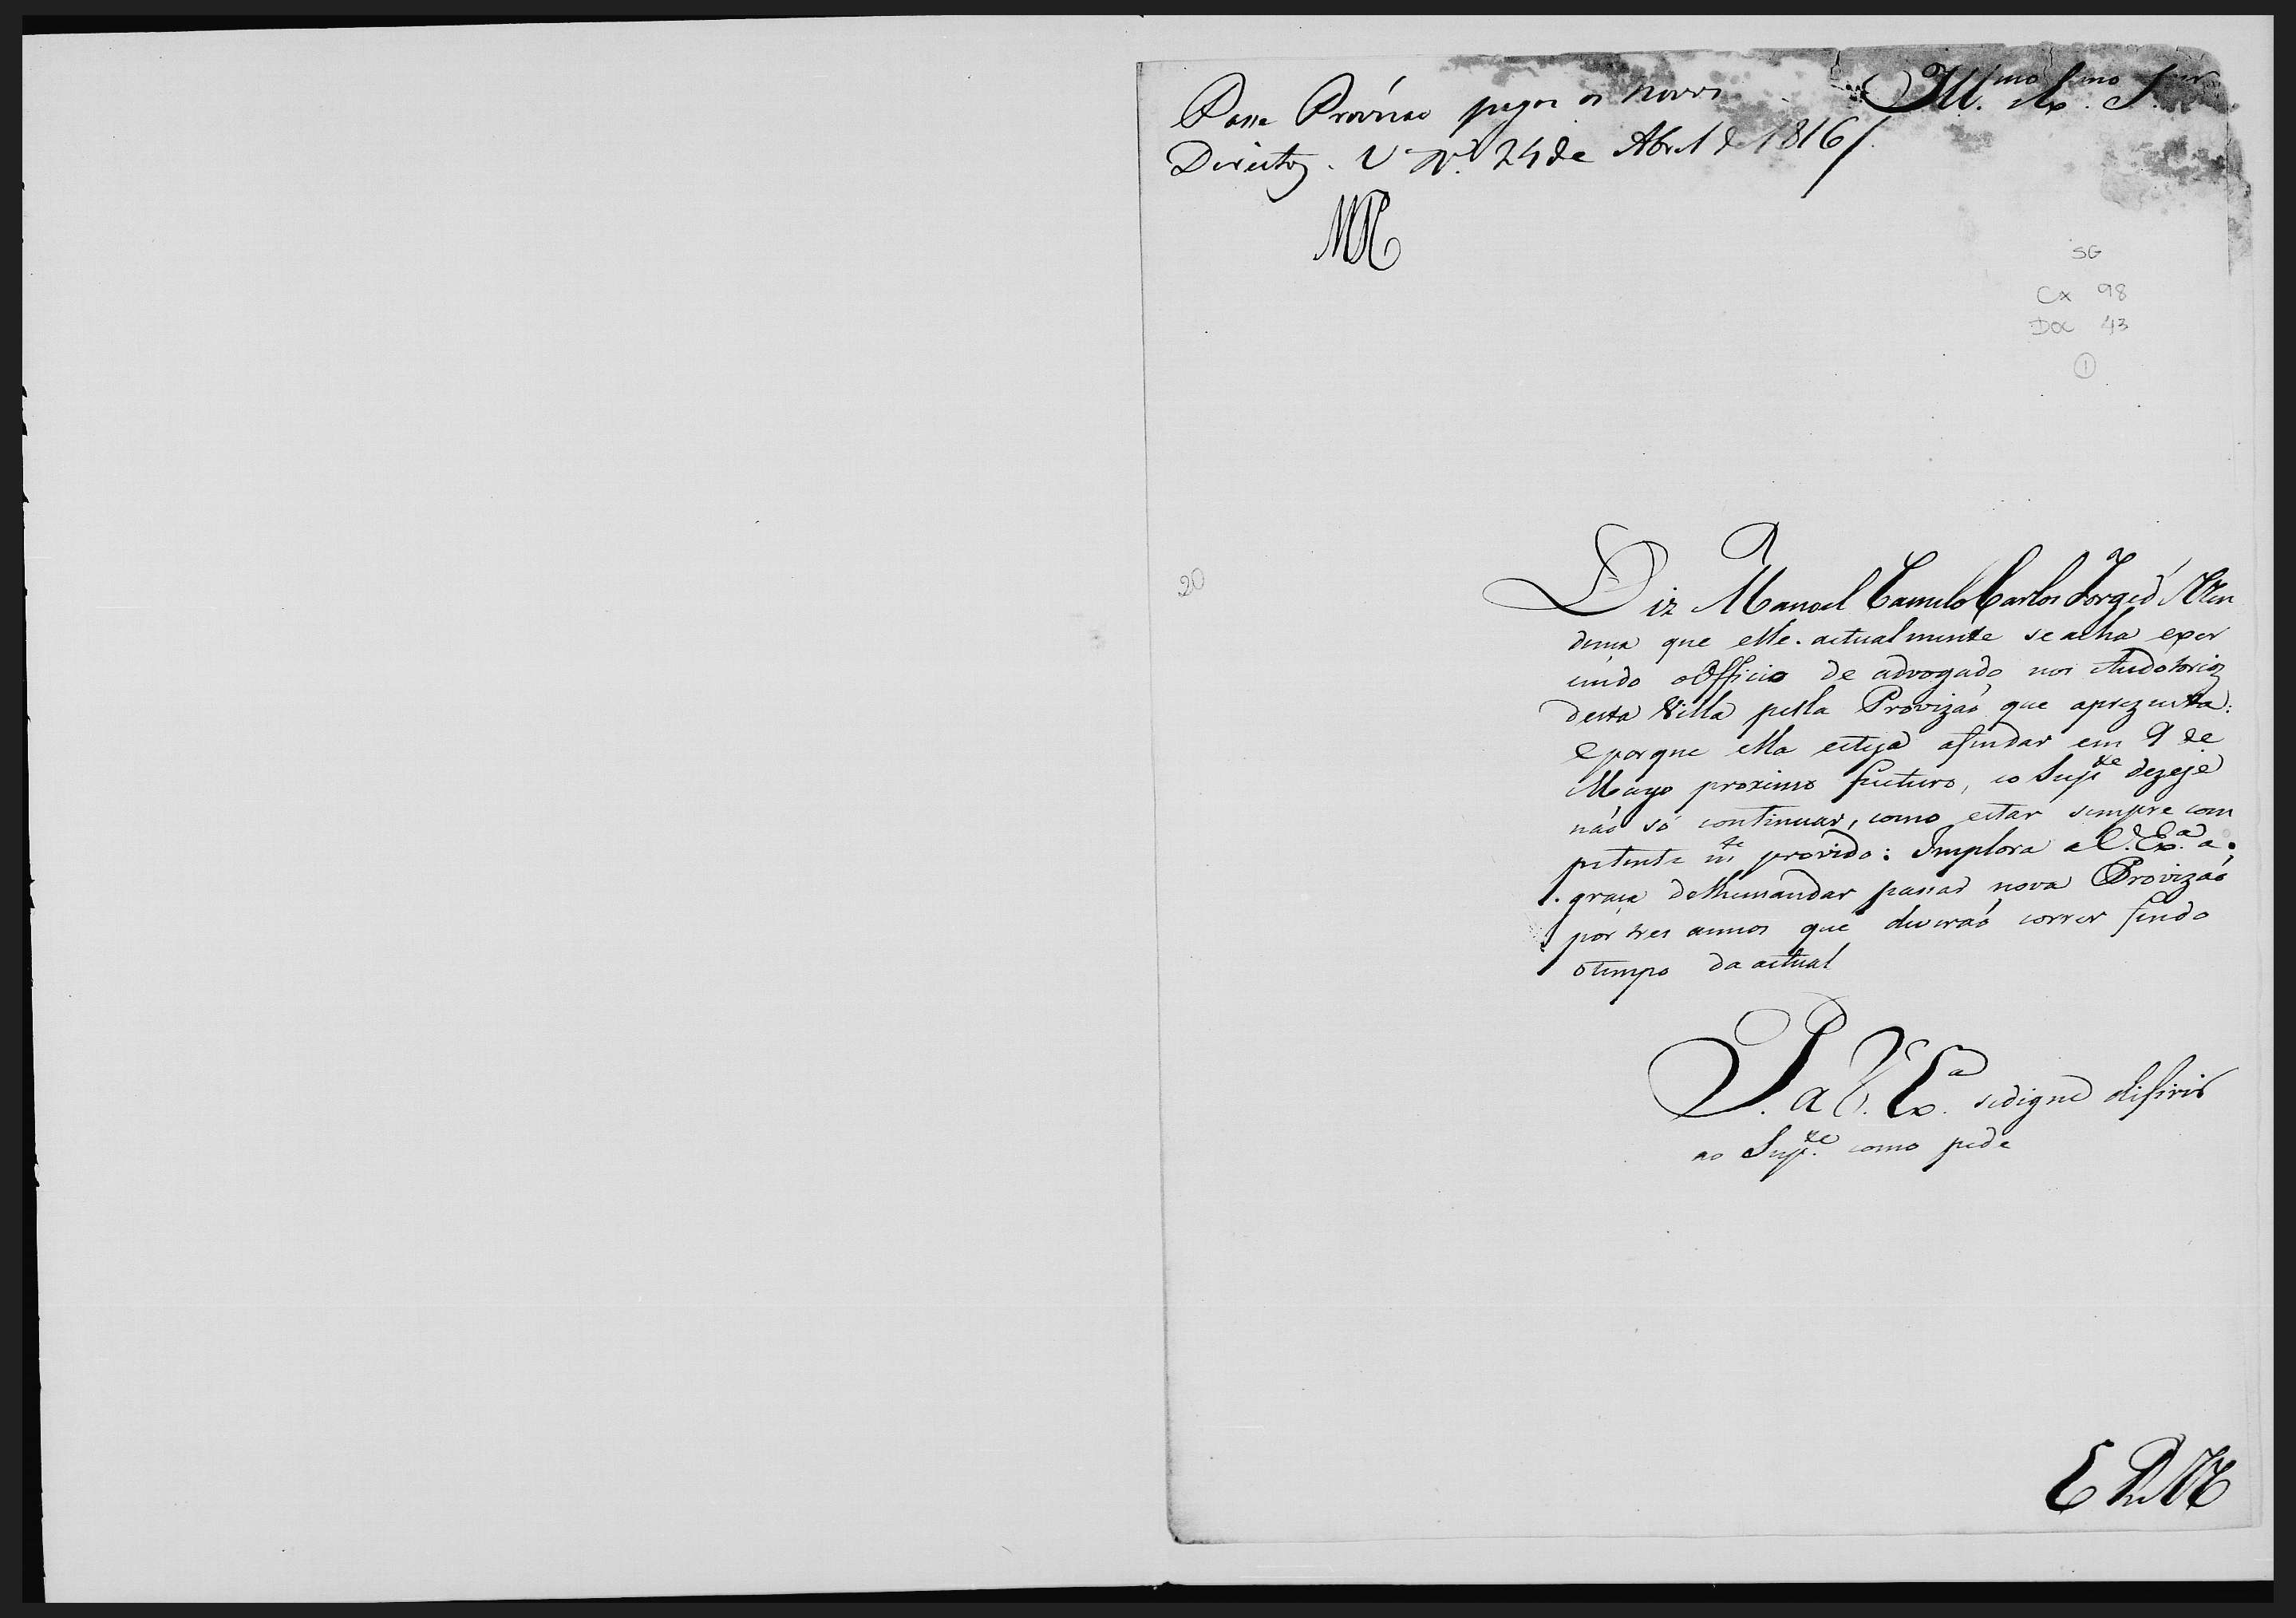 Passe Provizaõ pagos os novos
Direitos. V.ª R.ª 24 de Abril de 1816/.
MP
Ill.mo Ex.mo S.r
SG
Cx 98
Doc 43
1
20
Diz Manoel Camilo Carlos Jorge d' Men
dossa que elle actualmente se acha exer
cendo o Officio de advogado nos Auditorios
desta Villa pella Provizaõ que aprezenta:
e porque ella esteja afindar em 9 de
Mayo proximo futuro, e o Sup.te dezeje
naõ só continuar, como estar sempre com
petente m.te provido: Implora a V. Ex.ª a
graça de lhe mandar passar nova Provizaõ
por tres annos que deveraõ correr findo
o tempo da actual
P. a V. Ex.ª se digne diferir
ao Sup.te como pede
E R M